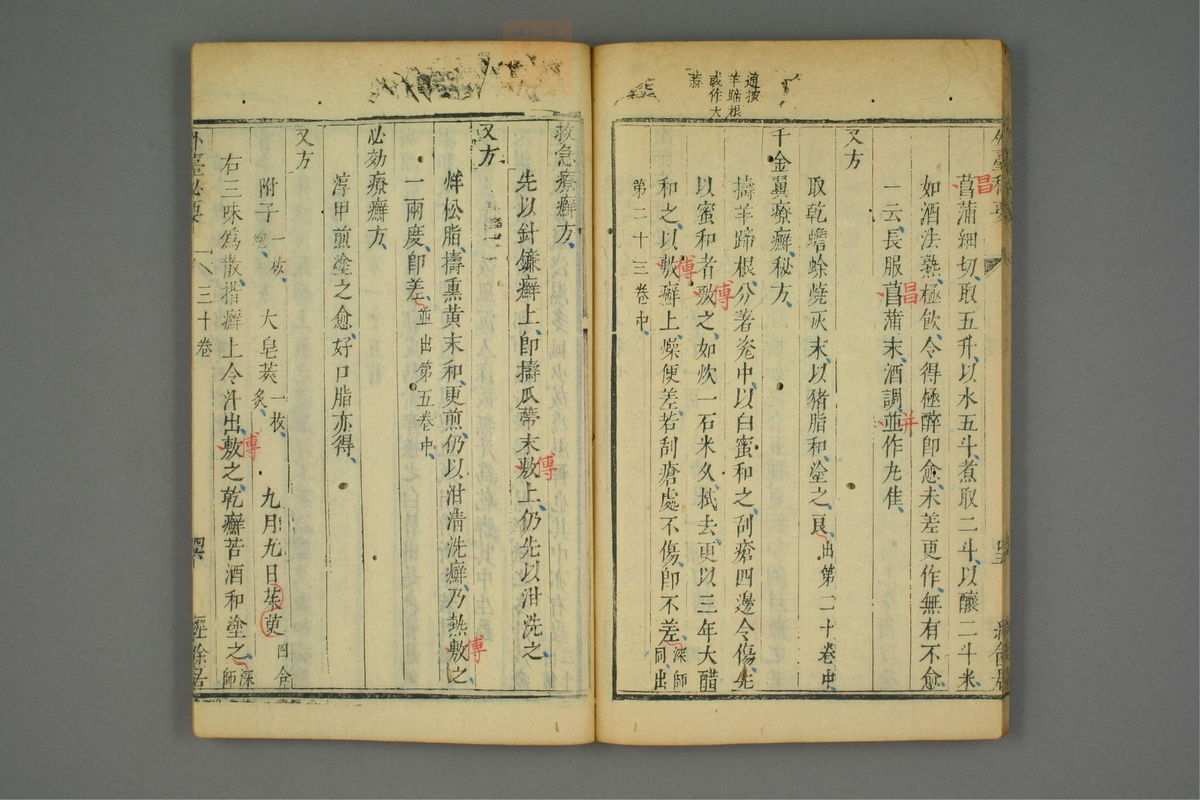 通按
羊蹄根
或作大
菾
外臺秘要
昌
菖蒲細切、取五升、以水五斗、煮取二斗、以釀二斗米、
如酒法熟、極飲、令得極醉即愈、未差更作、無有不愈、
一云、長服菖蒲末、酒調並作丸佳、
昌
并
又方
取乾蟾蜍燒灰末、以猪脂和、塗之良、出第二十卷中、
千金翼療癬秘方、
擣羊蹄根、分著瓷中、以白蜜和之、刮瘡四邊令傷、先
以蜜和者敷之、如炊一石米久、拭去、更以三年大醋
傅
和之、以敷癬上、燥便差、若刮瘡處不傷、即不差、深師同出
傅
第二十三卷中、
救急療癬方、
先以針鐮癬上、即擣瓜蒂末敷上、仍先以泔洗之、
傅
又方
烊松脂、擣熏黃末和、更煎、仍以泔清洗癬、乃熱敷之、
傅
一兩度、即差、並出第五卷中、
必効療癬方、
淳甲煎塗之愈、好口脂亦得、
又方
附子一枚、炮、 大皂莢一枚、炙、 九月九日茱萸四合
右三味為散、揩癬上令汁出、敷之、乾癬苦酒和塗之、深師
傅
外臺秘要 三十卷 經餘居